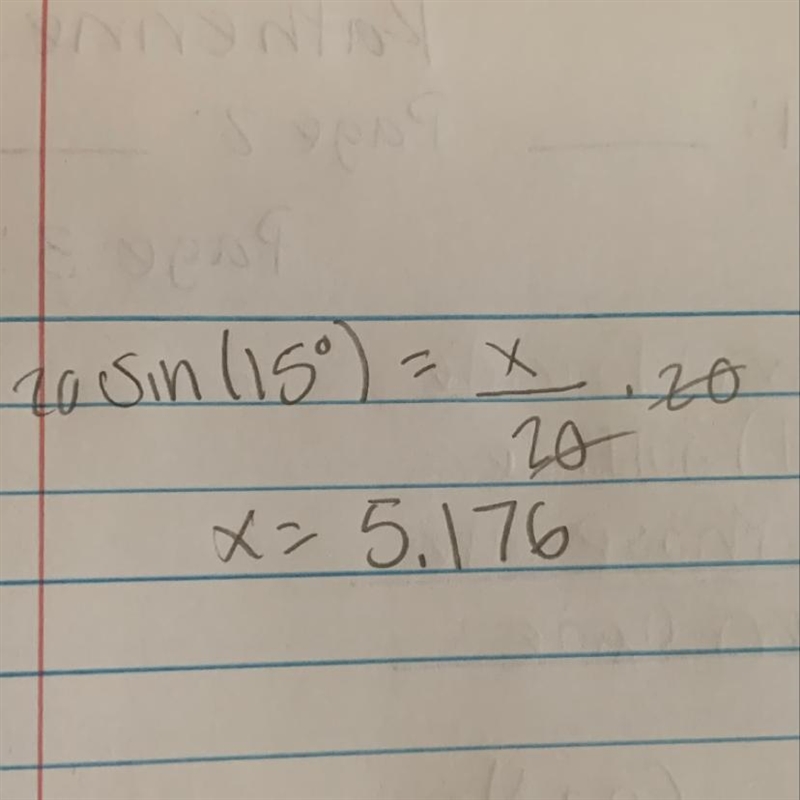 20 sin(15°) = x/20 · 20
x = 5.176